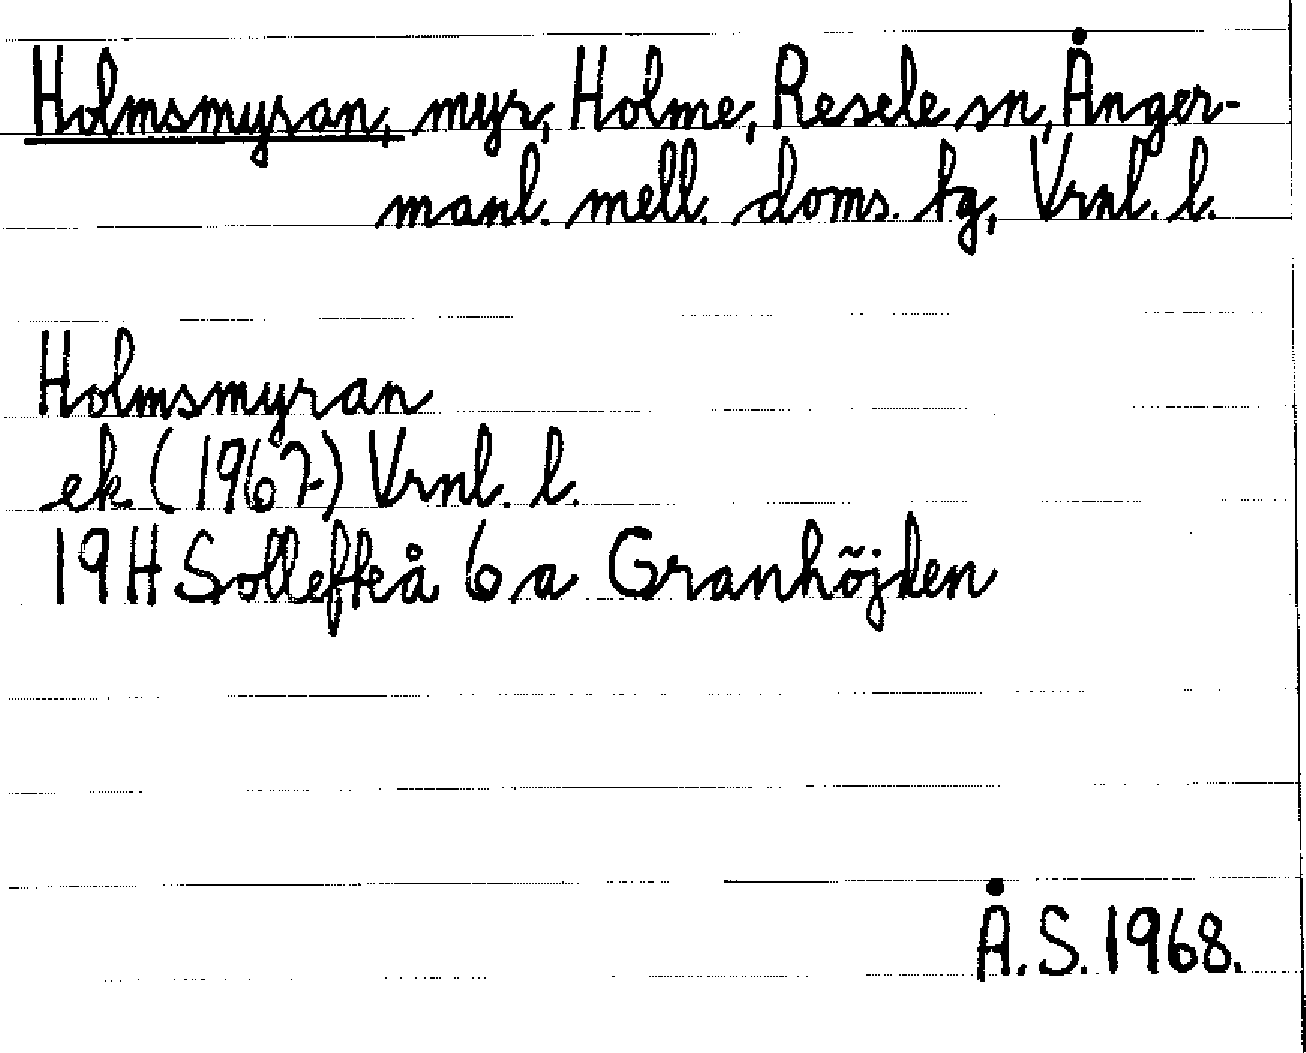 Holmsmyran, myr, Holme, Resele sn, Ånger-
manl. mell. doms. tg, Vrnl. l.
Holmsmyran
ek (1967) Vrnl. l.
19H Sollefteå 6 a Granhöjden
Å.S. 1968.